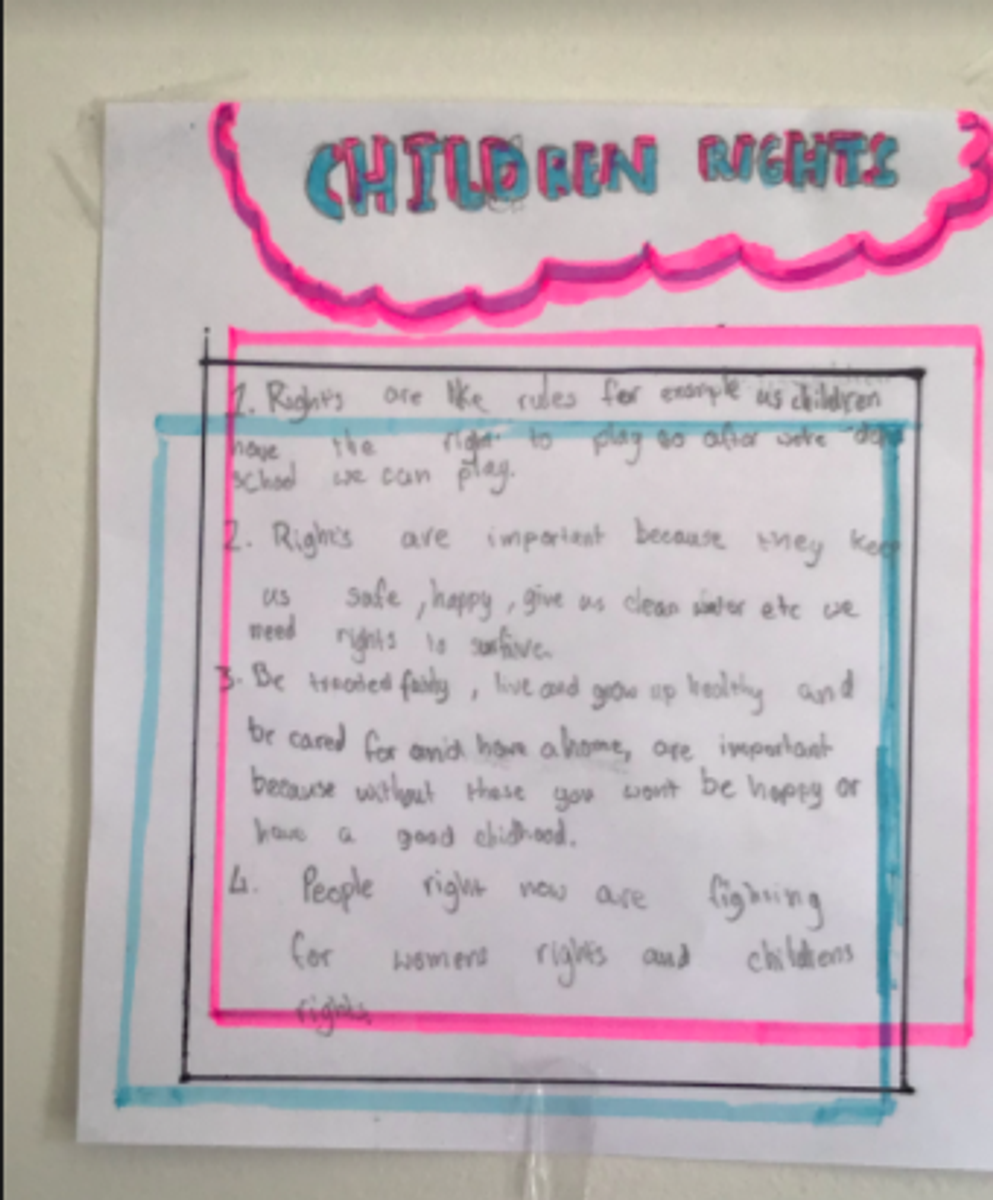 CHILDREN RIGHTS
1. Right's are like rules for example us children
have the right to play so after we're done
school we can play.
2. Right's are important because they keep
us safe, happy, give us clean water etc we
need rights to
3. Be treated fairly, live and grow up healthy and
be cared for and have a home, are important
because without these you wont be happy or
have a good chidhood.
4. People right now are fighting
for womens rights and childrens
rights.